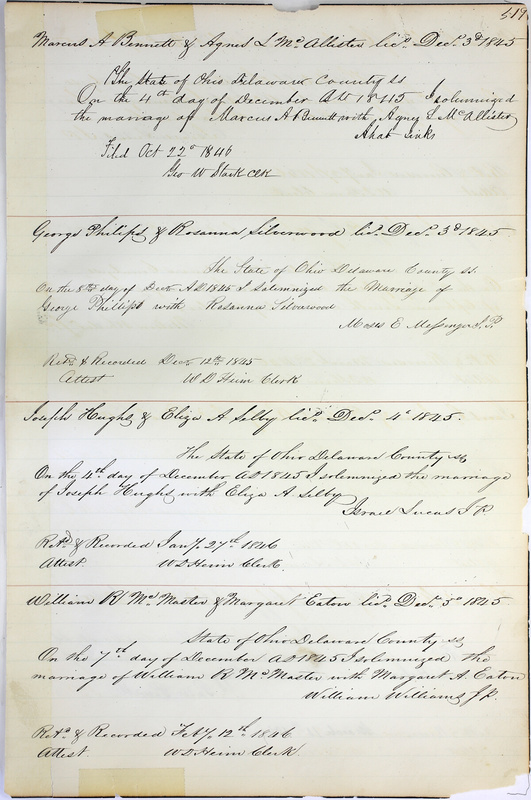 519
Marcus A Bennett & Agnes L McAllister licd Decr 3d 1845
The State of Ohio Delaware County ss
On the 4th day of December AD 1845 I solemnized
the marriage of Marcus A Bennett with Agnes L McAllister
Ahab Jinks
Filed Oct 22d 1846
Geo W Stark Clk
George Philips & Rosanna Silverwood licd Decr 3d 1845
The State of Ohio Delaware County ss.
On the 8th day of Decr AD 1845 I solemnized the Marriage of
George Phillips with Rosanna Silverwood
Moses E Messenger J.P.
Retd & Recorded Decr 12th 1845
Attest W D Heim Clerk
Joseph Hughs & Eliza A Selby licd Decr 4th 1845.
The State of Ohio Delaware County ss
On the 4th day of December AD 1845 I solemnized the marriage
of Joseph Hughs with Eliza A Selby
Israel Lucas JP
Retd & Recorded Jany 27th 1846
Attest W D Heim Clerk.
William R McMaster & Margaret Eaton licd Decr 5th 1845
State of Ohio Delaware County ss
On the 7th day of December AD 1845 I solemnized the
marriage of William R McMaster with Margaret A Eaton
William Williams J.P.
Retd & Recorded Feby 12th 1846
Attest. W D Heim Clerk